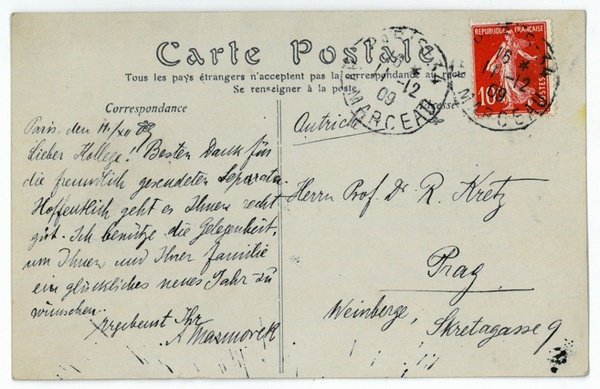 Carte Postale
Tous les pays étrangers n'acceptent pas la correspondance au recto
Se renseigner à la poste
Correspondance
Paris, den 14/XII 09
Lieber Kollege! Besten Dank für
die freundlich gesendeten Separata.
Hoffentlich geht es Ihnen recht
gut. Ich benütze die Gelegenheit,
um Ihnen und Ihrer Familie
ein glückliches neues Jahr zu
wünschen.
Ergebenst Ihr
A Marmorek
Autriche
Herrn Prof. Dr R. Kretz
Prag
Weinberge, Skretagasse 9
REPUBLIQUE FRANÇAISE
10
POSTES
PARIS
12
09
MARCEAU
12
09
MARCEAU